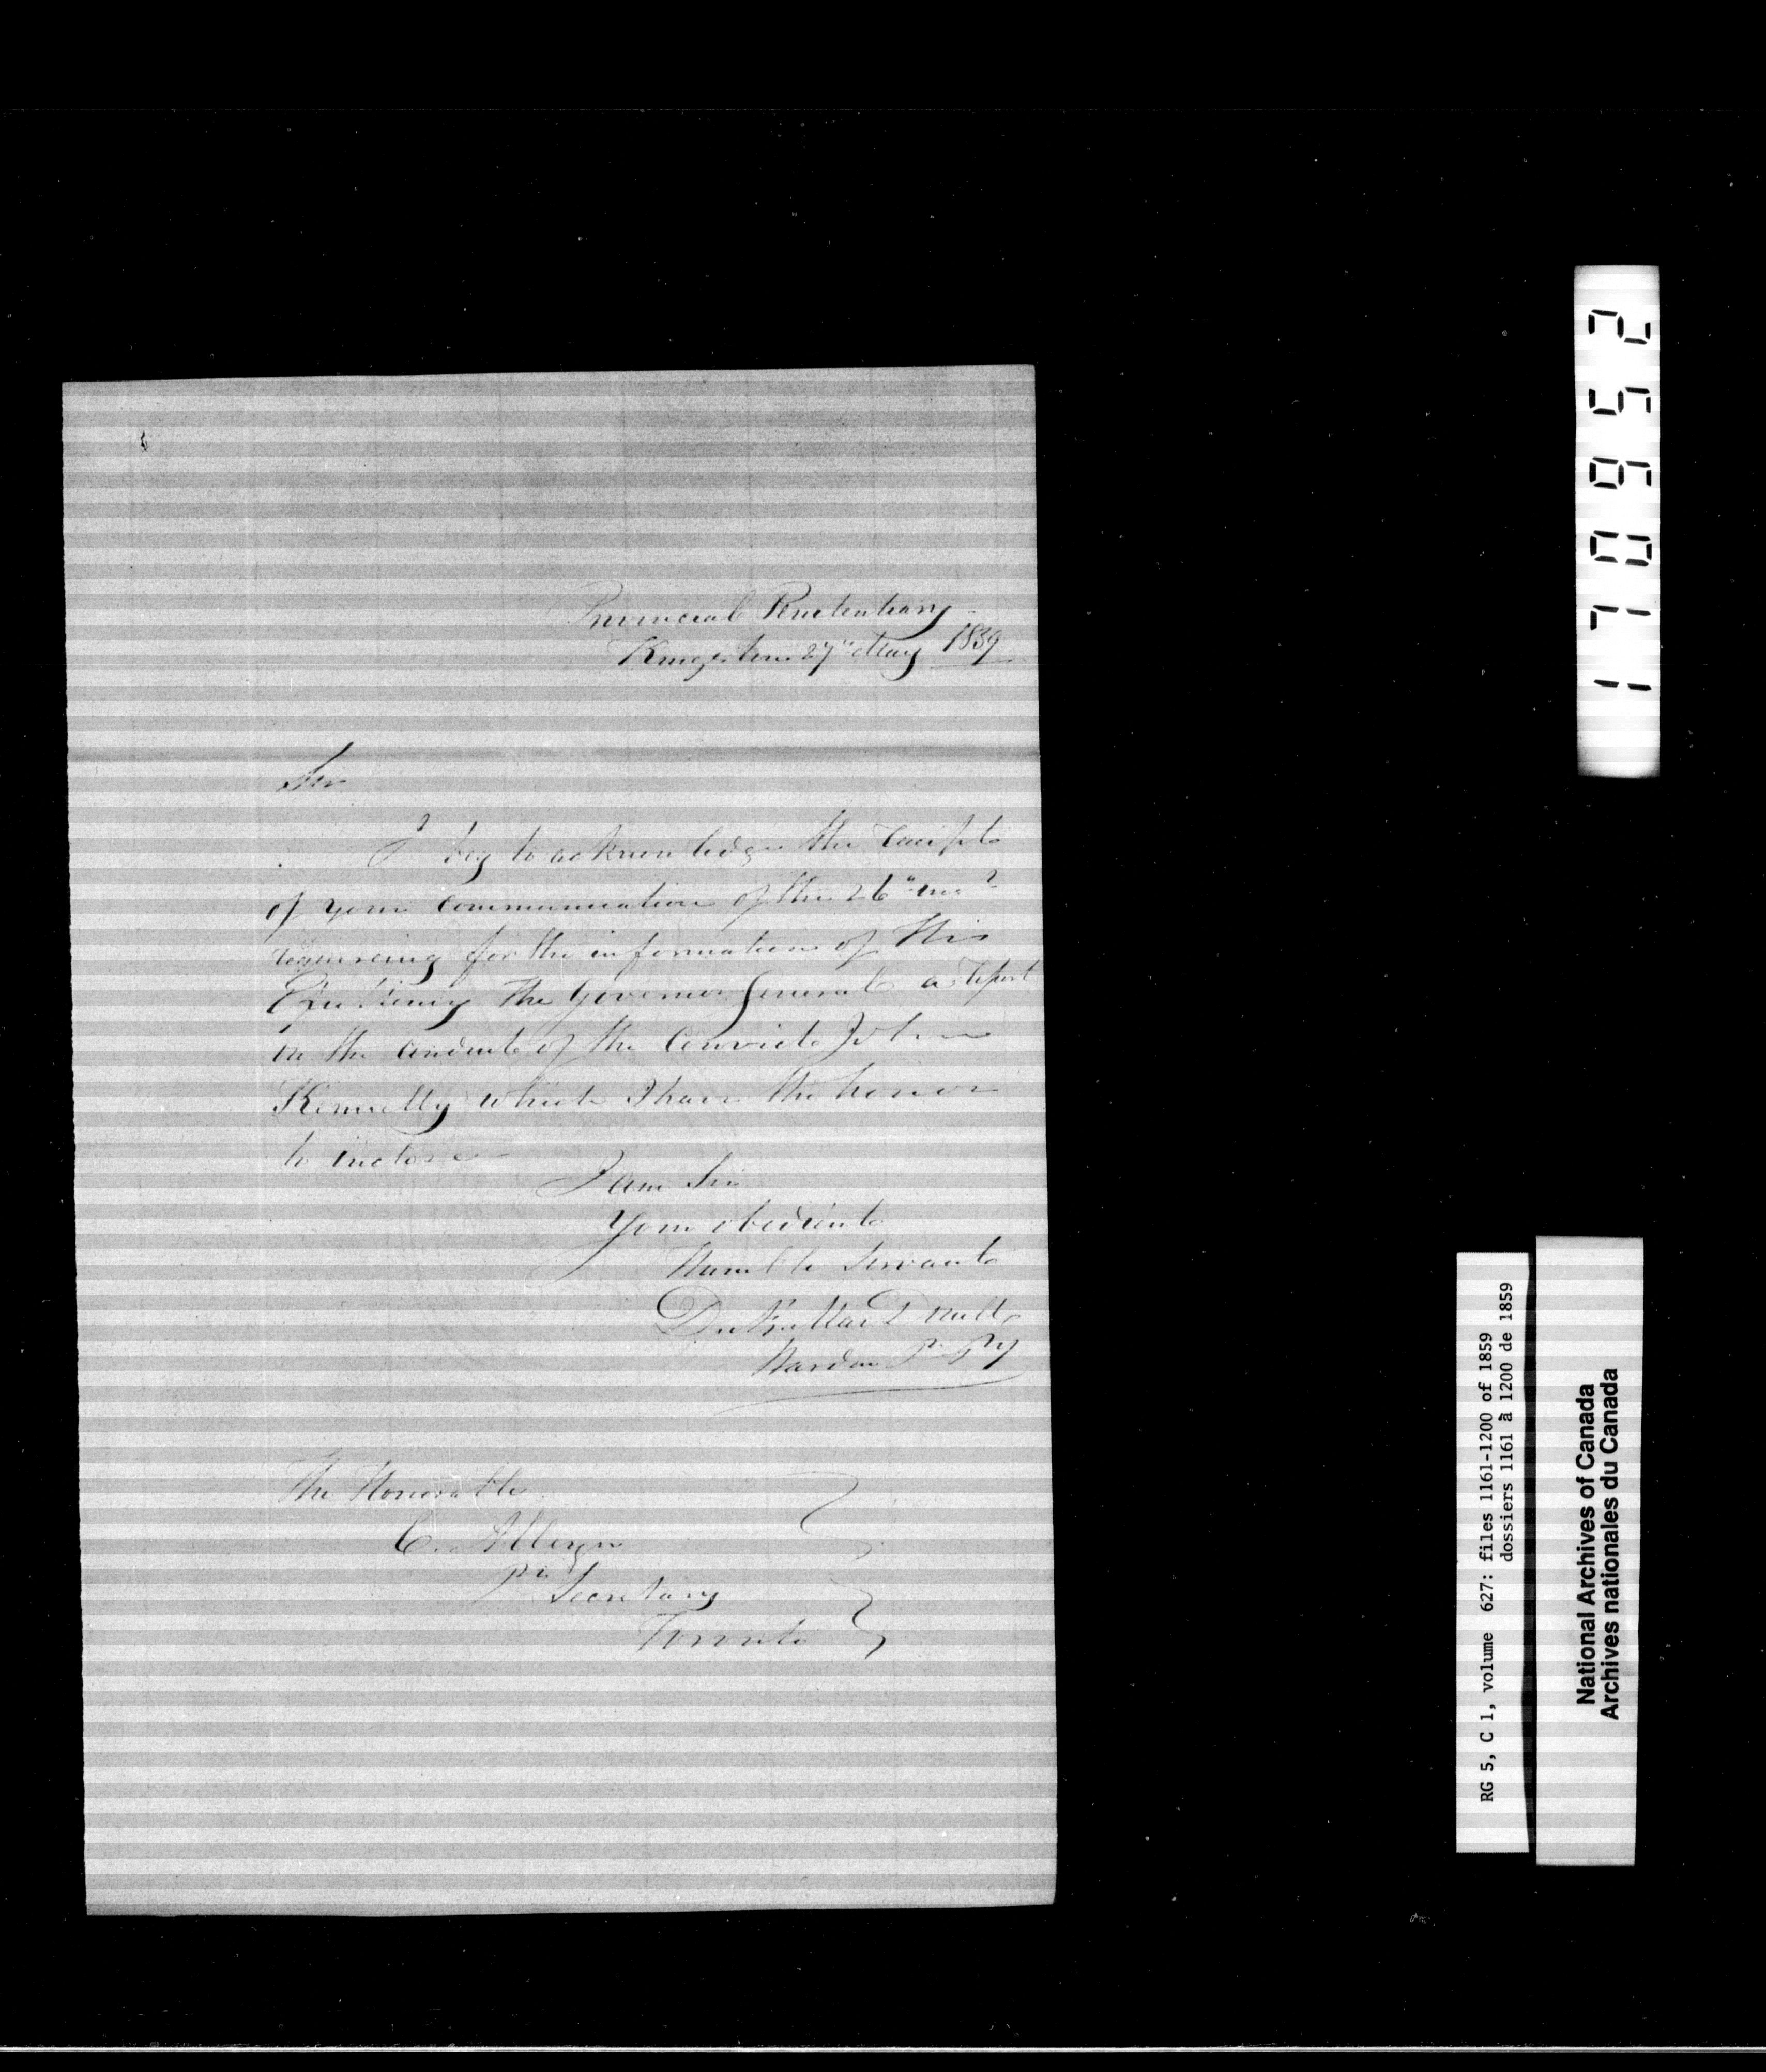 Provincial Penitentiary
Kingston 27" May 1859
Sir
I beg to acknowledge the receipt
of your communication of the 26" ins t
requiring for the information of His
Excellency The Governor General a report
on the conduct of the Convict John
Kennelly which I have the honor
to inclose
I am Sir
Your obedient
Humble Servant
Macdonell
Warden P. P y
The Honorable
C. Alleyn
Pl Secretary
Toronto
170952
RG 5, C 1, volume 627: files 1161-1200 of 1859
dossiers 1161 à 1200 de 1859
National Archives of Canada
Archives nationales du Canada